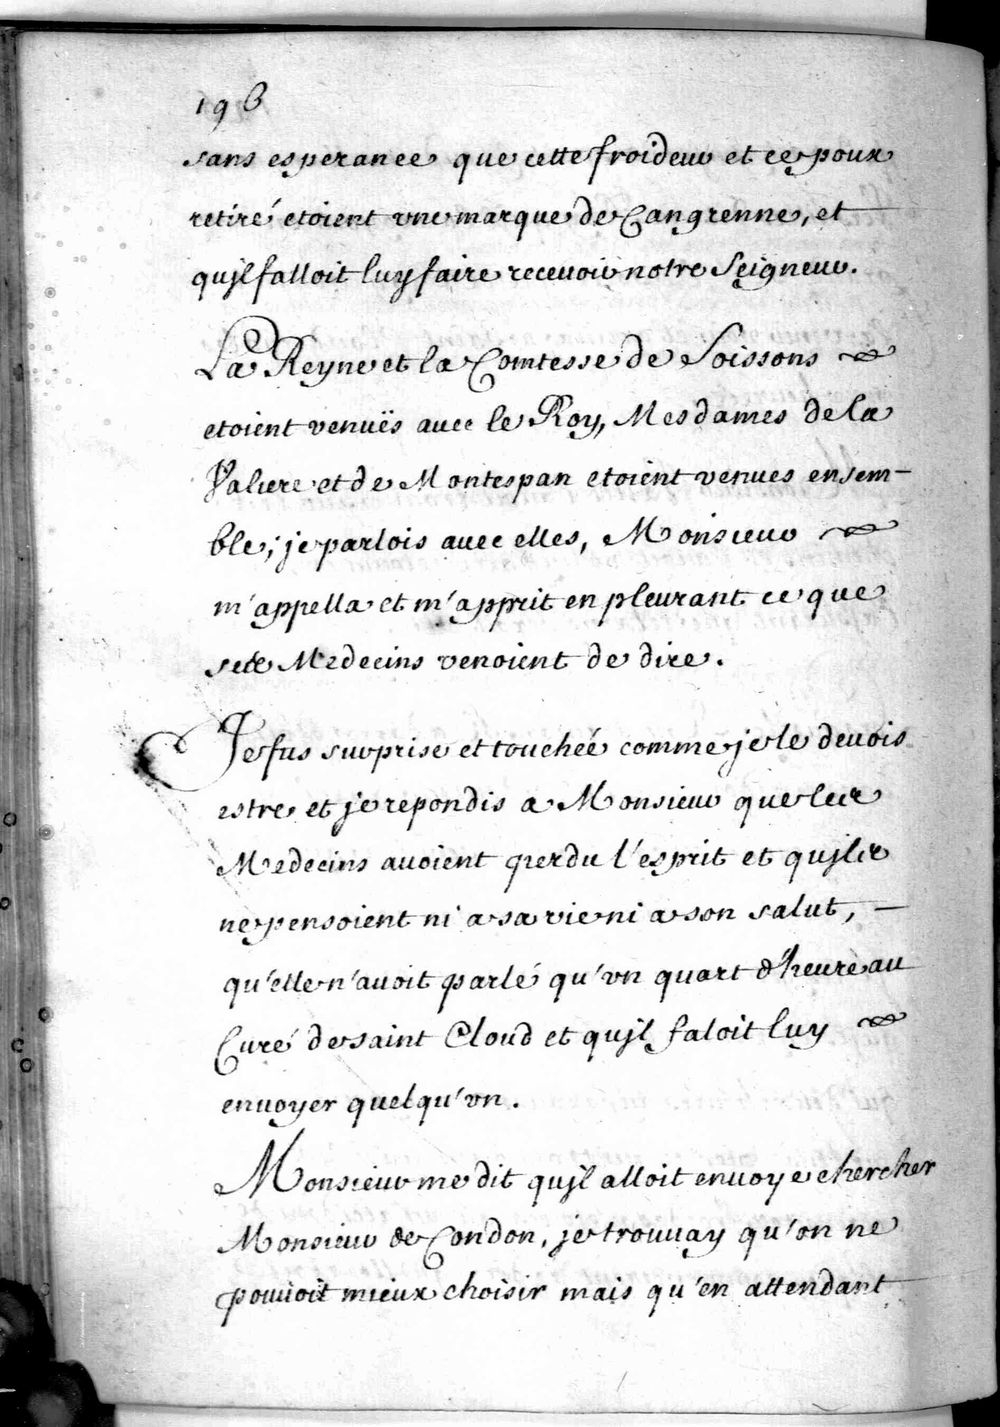 196
sans esperance que cette froideur et ce poux
retiré etoient vne marque de Cangrenne, et
qu'jl falloit luy faire receuoir notre Seigneur.
La Reyne et la Comtesse de Soissons
etoient venuës auec le Roy, Mesdames de la
Valiere et de Montespan etoient venues ensem-
ble; je parlois auec elles, Monsieur
m'appella et m'apprit en pleurant ce que
ses Medecins venoient de dire.
Je fus surprise et touchée comme je le deuois
estre et je repondis a Monsieur que les
Medecins auoient perdu l'esprit et qu'jls
ne pensoient ni a sa vie ni a son salut, —
qu'elle n'auoit parlé qu'vn quart d'heure au
Curé de saint Cloud et qu'jl faloit luy
enuoyer quelqu'vn.
Monsieur me dit qu'jl alloit enuoye chercher
Monsieur de Condon, je trouuay qu'on ne
pouuoit mieux choisir mais qu'en attendant